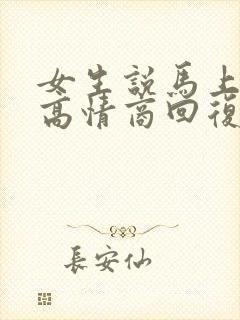 女生説馬上
高情商回復
長安仙